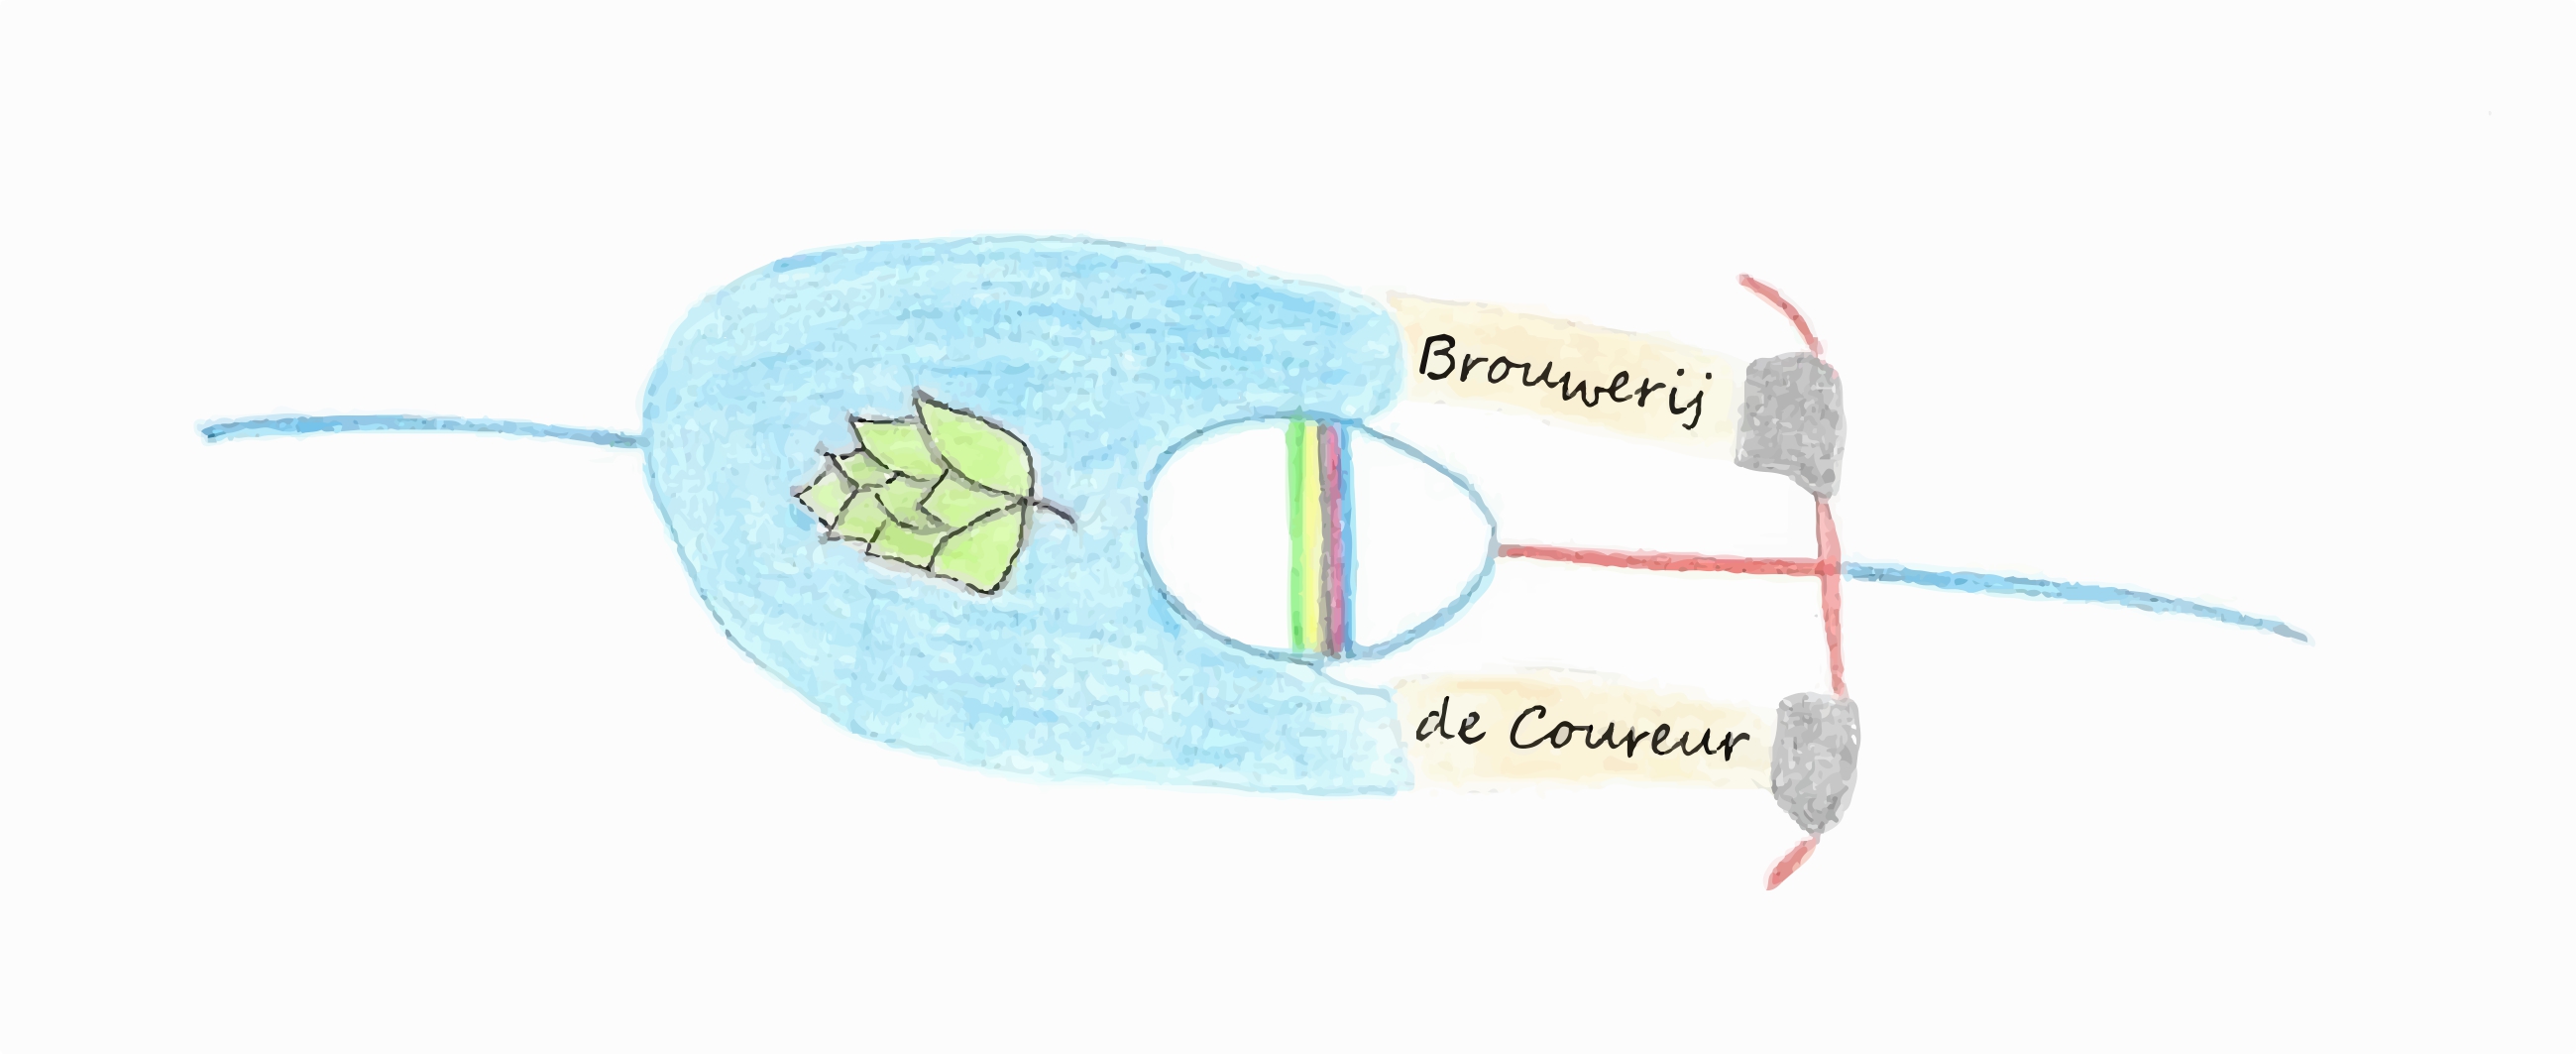 Brouwerij
de Coureur